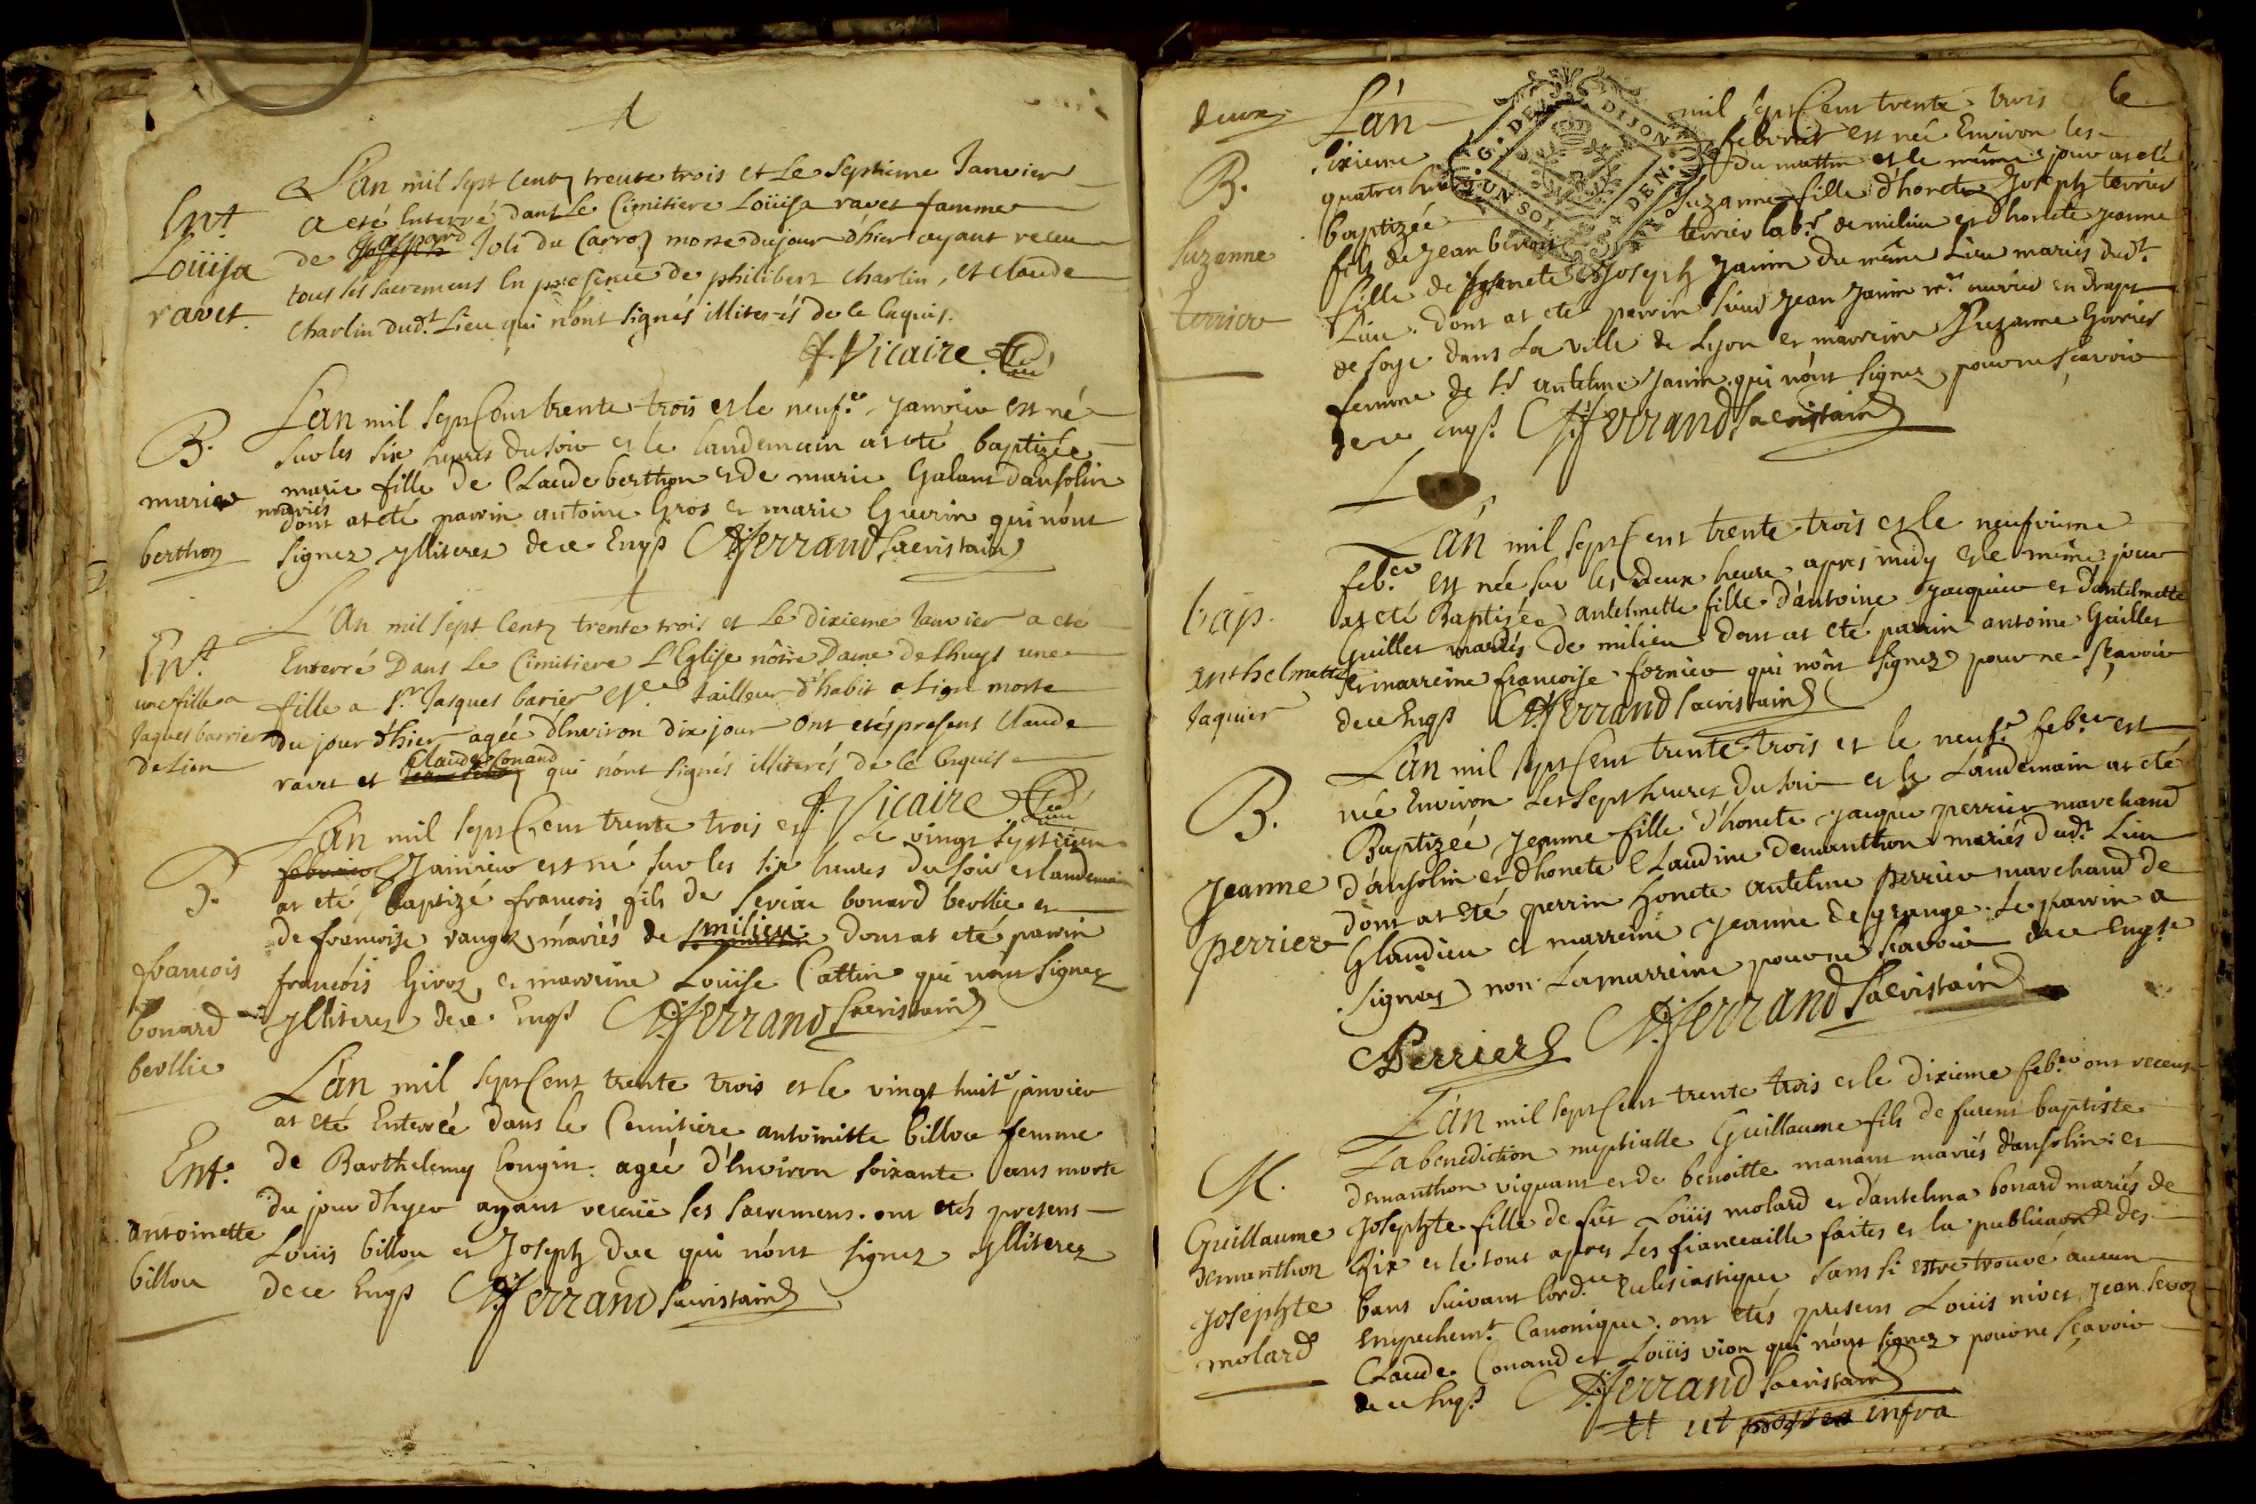 L'an mil sept Centz trente trois et Le Septieme Janvier
a eté Enterré dans Le Cimitiere Loüisa ravet famme
de Gaspard Joli du Carroz morte du jour d'hier ayant receu
tous les sacremens En presence de philibert Charlin, et Claude
Charlin dud.t Lieu qui n'ont signés illiterés de le Enquis.
Vicaire
Ent
Loüisa
ravet
L'an mil sept Cent trente trois et le neuf.e Janvier est né
sur les six heures du soir et le landemain at eté baptizée
marie fille de Claude berthon et de marie Galant d'ansolin
mariés
dont at eté parrin antoine Gros et marie Guerin qui n'ont
signez ylliterez de ce Enqs Ferrand Sacristain
B.
marie
berthon
L'An mil sept Centz trente trois et Le dixieme Janvier a ete
Enterré Dans Le Cimitiere L'Eglise nôtre Dame de Lhuys une
fille a Sr Jasques barier tailleur d'habit a Lion morte
du jour d'hier agée d'Environ dix jour Ont etés present Claude
ravet et Claude Conand qui n'ont signés illiterés de le Enquis
Vicaire
Ent
une fille a
Jaques barrier
de Lion
L'an mil sept Cent trente trois et le vingt septieme
febvrier Janvier est né sur les six heures du soir et landemain
at eté baptizé francois fils de bonard berllie et
de francoise mariés de milieu dont at eté parrin
francois Giroz et marreine Loüise Cattin qui n'ont signez
ylliterez de ce Enqs Ferrand Sacristain
B.
francois
bonard
berllie
L'an mil sept Cent trente trois et le vingt huit.e janvier
at eté Enterrée dans le Cemitiere antoinette billou femme
de Barthelemy Longin agée d'Environ soixante ans morte
du jour d'hyer ayant recüe les sacremens. ont etés presens
Loüis billou et Joseph duc qui n'ont signez ylliterez
de ce Enqs Ferrand Sacristain
Ent.
antoinette
billou
deux
L'an mil sept Cent trente trois et le
sixieme febvrier est née Environ les
quatres heures du mattin et le même jour at eté
baptizée Suzanne fille d'honete Joseph terrier
fils de Jean benoit terrier lab.r de milieu et d'honete jeanne
fille de Joseph Janin du même Lieu mariés dud.t
Lieu. dont at eté parrin sieur Jean Janin m.e ouvrier en draps
de soye dans La ville de Lyon et marreine Suzanne
femme de S.r antelme Janin qui n'ont signez pour ne sçavoir
de ce Enqs. Ferrand Sacristain
B.
Suzanne
terrier
G. DE DIJON
UN SOL 4 DEN.
L'an mil sept Cent trente trois et le neufvieme
feb.er est née sur les deux heure apres midy et le même jour
at eté Baptizée antelmette fille d'antoine Jacquier et d'antelmette
Guillet mariés de milieu dont at eté parrin antoine Guillet
et marreine francoise fornier qui n'ont signez pour ne sçavoir
de ce Enqs Ferrand Sacristain
bap.
anthelmette
Jaquier
L'an mil sept Cent trente trois et le neuf.e feb.er est
née Environ Les sept heures du soir et le Landemain at eté
Baptizeé Jeanne fille d'honete Jaque perrier marchand
d'ansolin et d'honete Claudine demanthon mariés dud.t Lieu
dont at eté perrin honete antelme perrier marchand de
Glandieu et marreine Jeanne de grange. Le parrin a
signez non La marreine pour ne sçavoir de ce Enqse
Perrier Ferrand Sacristain
B.
Jeanne
perrier
L'an mil sept Cent trente trois et le dixieme feb.er ont receus
La benediction nuptialle Guillaume fils de furent baptiste
demanthon viquant et de benoitte manant mariés d'ansolin et
Josephte fille de fût Loüis molard et d'antelma bonard mariés de
Rix et le tout apres Les fiancaille faites et la publicaon des
bans suivant lord.ce Eclesiastique sans si estre trouvé aucun
Empechem.t Canonique. ont etés presens Loüis nivet, Jean Sevoz
Claude Conand et Loüis vion qui n'ont signez pour ne sçavoir
de ce Enqs Ferrand Sacristain
M.
Guillaume
demanthon
Josephte
molard
ut infra